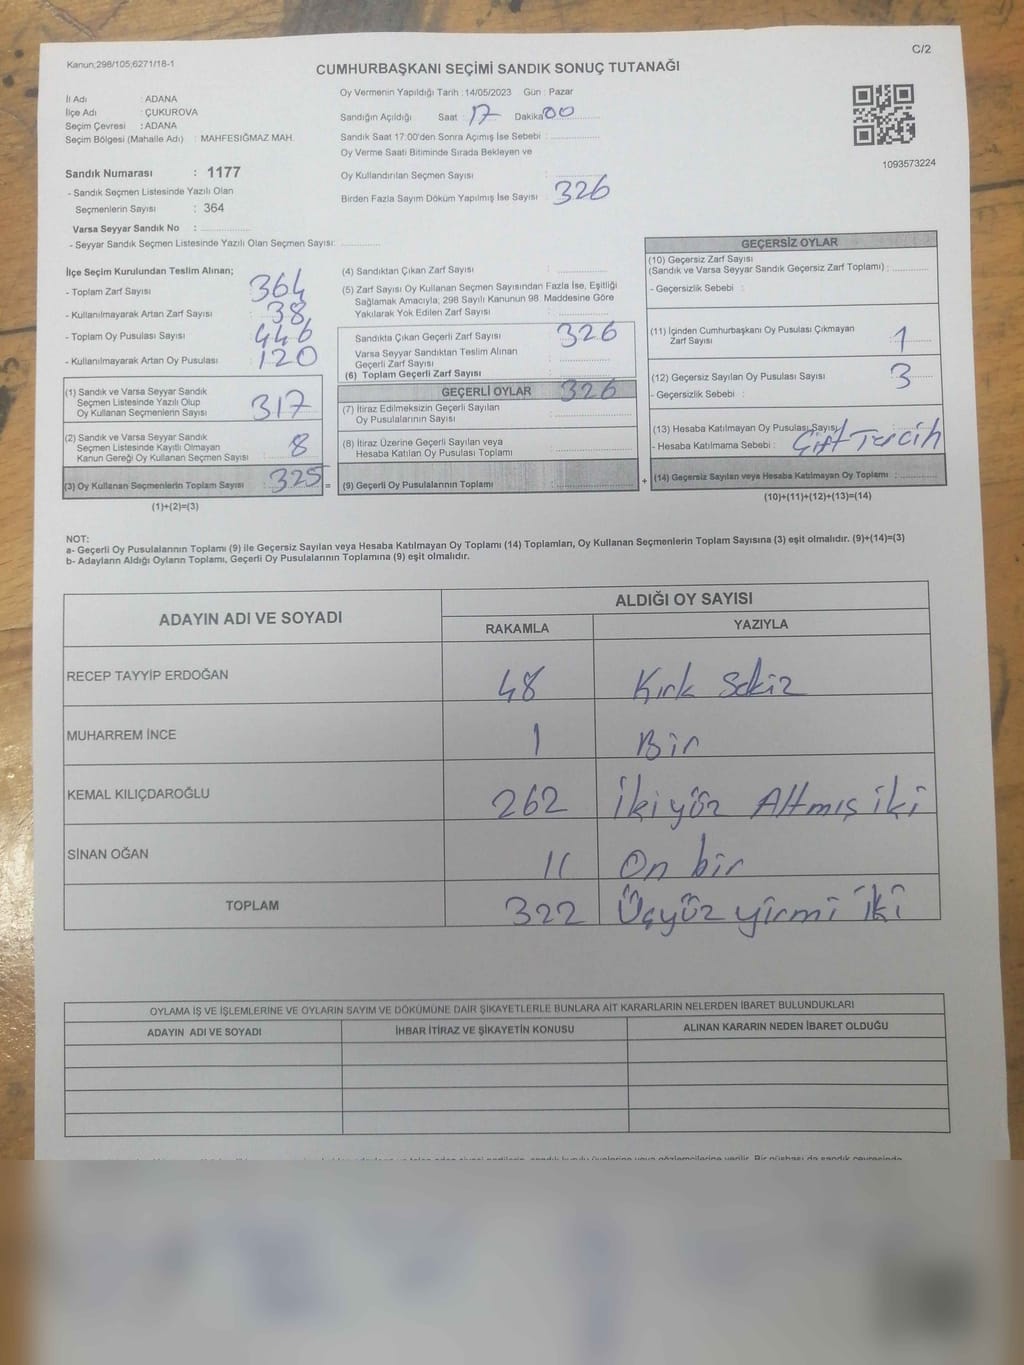 C/2
Kanun;298/105;6271/18-1
CUMHURBAŞKANI SEÇİMİ SANDIK SONUÇ TUTANAĞI
İl Adı : ADANA
İlçe Adı : ÇUKUROVA
Seçim Çevresi : ADANA
Seçim Bölgesi (Mahalle Adı) : MAHFESIĞMAZ MAH.
Sandık Numarası : 1177
- Sandık Seçmen Listesinde Yazılı Olan
Seçmenlerin Sayısı : 364
Varsa Seyyar Sandık No :
- Seyyar Sandık Seçmen Listesinde Yazılı Olan Seçmen Sayısı:
Oy Vermenin Yapıldığı Tarih : 14/05/2023 Gün : Pazar
Sandığın Açıldığı Saat : 17 Dakika 00
Sandık Saat 17:00'den Sonra Açımış İse Sebebi :
Oy Verme Saati Bitiminde Sırada Bekleyen ve
Oy Kullandırılan Seçmen Sayısı :
Birden Fazla Sayım Döküm Yapılmış İse Sayısı : 326
1093573224
İlçe Seçim Kurulundan Teslim Alınan;
- Toplam Zarf Sayısı 364
- Kullanılmayarak Artan Zarf Sayısı 38
- Toplam Oy Pusulası Sayısı 446
- Kullanılmayarak Artan Oy Pusulası 120
(1) Sandık ve Varsa Seyyar Sandık
Seçmen Listesinde Yazılı Olup
Oy Kullanan Seçmenlerin Sayısı 317
(2) Sandık ve Varsa Seyyar Sandık
Seçmen Listesinde Kayıtlı Olmayan
Kanun Gereği Oy Kullanan Seçmen Sayısı 8
(3) Oy Kullanan Seçmenlerin Toplam Sayısı 325 =
(1)+(2)=(3)
(4) Sandıktan Çıkan Zarf Sayısı :
(5) Zarf Sayısı Oy Kullanan Seçmen Sayısından Fazla İse, Eşitliği
Sağlamak Amacıyla; 298 Sayılı Kanunun 98. Maddesine Göre
Yakılarak Yok Edilen Zarf Sayısı :
Sandıkta Çıkan Geçerli Zarf Sayısı 326
Varsa Seyyar Sandıktan Teslim Alınan
Geçerli Zarf Sayısı
(6) Toplam Geçerli Zarf Sayısı
GEÇERLİ OYLAR 326
(7) İtiraz Edilmeksizin Geçerli Sayılan
Oy Pusulalarının Sayısı :
(8) İtiraz Üzerine Geçerli Sayılan veya
Hesaba Katılan Oy Pusulası Toplamı :
(9) Geçerli Oy Pusulalarının Toplamı : +
GEÇERSİZ OYLAR
(10) Geçersiz Zarf Sayısı
(Sandık ve Varsa Seyyar Sandık Geçersiz Zarf Toplamı) :
- Geçersizlik Sebebi :
(11) İçinden Cumhurbaşkanı Oy Pusulası Çıkmayan
Zarf Sayısı 1
(12) Geçersiz Sayılan Oy Pusulası Sayısı 3
- Geçersizlik Sebebi :
(13) Hesaba Katılmayan Oy Pusulası Sayısı
- Hesaba Katılmama Sebebi : Çift Tercih
(14) Geçersiz Sayılan veya Hesaba Katılmayan Oy Toplamı :
(10)+(11)+(12)+(13)=(14)
NOT:
a- Geçerli Oy Pusulalarının Toplamı (9) ile Geçersiz Sayılan veya Hesaba Katılmayan Oy Toplamı (14) Toplamları, Oy Kullanan Seçmenlerin Toplam Sayısına (3) eşit olmalıdır. (9)+(14)=(3)
b- Adayların Aldığı Oyların Toplamı, Geçerli Oy Pusulalarının Toplamına (9) eşit olmalıdır.
ADAYIN ADI VE SOYADI ALDIĞI OY SAYISI
RAKAMLA YAZIYLA
RECEP TAYYİP ERDOĞAN 48 Kırk Sekiz
MUHARREM İNCE 1 Bir
KEMAL KILIÇDAROĞLU 262 İkiyüz Altmış iki
SİNAN OĞAN 11 On bir
TOPLAM 322 Üçyüz yirmi iki
OYLAMA İŞ VE İŞLEMLERİNE VE OYLARIN SAYIM VE DÖKÜMÜNE DAİR ŞİKAYETLERLE BUNLARA AİT KARARLARIN NELERDEN İBARET BULUNDUKLARI
ADAYIN ADI VE SOYADI İHBAR İTİRAZ VE ŞİKAYETİN KONUSU ALINAN KARARIN NEDEN İBARET OLDUĞU